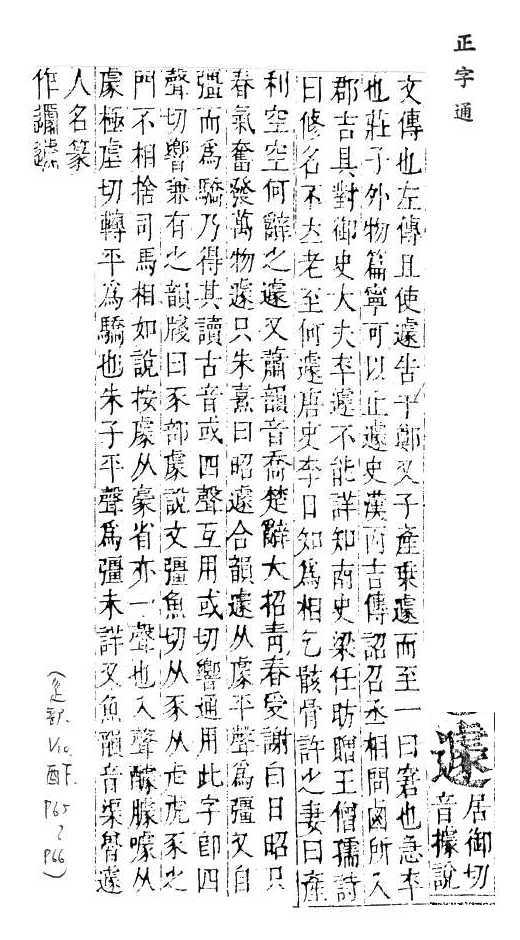 正字通
遽
居御切
音據說
文傳也左傳且使遽告于鄭又子產乘遽而至一曰窘也急卒
也莊子外物篇寧可以止遽史漢丙吉傳詔召丞相問虜所入
郡吉具對御史大夫卒遽不能詳知南史梁任昉贈王僧孺詩
曰修名不立老至何遽唐史李日知為相乞骸骨許之妻曰產
利空空何辭之遽又蕭韻音喬楚辭大招青春受謝白日昭只
春氣奮發萬物遽只朱熹曰昭遽合韻遽从豦平聲為彊又自
彊而為驕乃得其讀古音或四聲互用或切響通用此字即四
聲切響兼有之韻牋曰豕部豦說文彊魚切从豕从虍虎豕之
鬥不相捨司馬相如說按豦从豪省亦一聲也入聲醵臄噱从
豦極虐切轉平為驕也朱子平聲為彊未詳又魚韻音渠聲遽
人名篆
作
V10.
酉下.
P65
P66